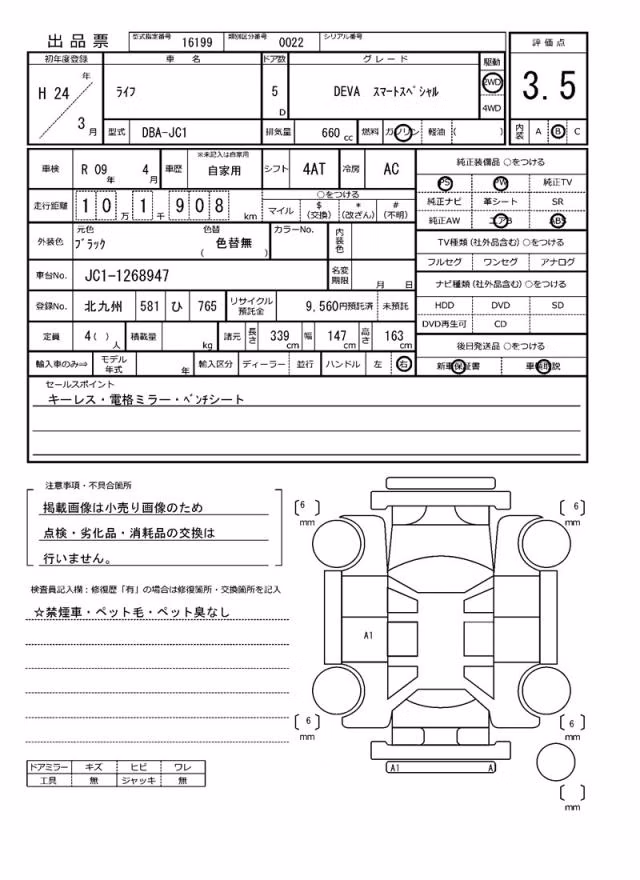 出品票 型式指定番号 16199 類別区分番号 0022 シリアル番号
初年度登録 車名 ドア数 グレード 駆動 評価点
H 24 年 3 月 ライフ 5 D DEVA スマートスペシャル 2WD 4WD 3.5
型式 DBA-JC1 排気量 660 cc 燃料 ガソリン 軽油 ( ) 内装 A B C
車検 R 09 年 4 月 車歴 ※未記入は自家用 自家用 シフト 4AT 冷房 AC 純正装備品 ○をつける
PS PW 純正TV
走行距離 1 0 万 1 千 9 0 8 km ○をつける
マイル $(交換) *(改ざん) #(不明) 純正ナビ 革シート SR
純正AW エアB ABS
外装色 元色 ブラック 色替 ( 色替無 ) カラーNo. 内装色 TV種類 (社外品含む) ○をつける
フルセグ ワンセグ アナログ
車台No. JC1-1268947 名変期限 月 日 ナビ種類 (社外品含む) ○をつける
登録No. 北九州 581 ひ 765 リサイクル預託金 9,560円預託済 未預託 HDD DVD SD
DVD再生可 CD
定員 4( ) 人 積載量 kg 諸元 長さ 339 cm 幅 147 cm 高さ 163 cm 後日発送品 ○をつける
輸入車のみ⇒ モデル年式 年 輸入区分 ディーラー 並行 ハンドル 左 右 新車保証書 車輌取説
セールスポイント
キーレス・電格ミラー・ベンチシート
注意事項・不具合箇所
掲載画像は小売り画像のため
点検・劣化品・消耗品の交換は
行いません。
検査員記入欄：修復歴「有」の場合は修復箇所・交換箇所を記入
☆禁煙車・ペット毛・ペット臭なし
[ 6 ] mm
[ 6 ] mm
A1
[ 6 ] mm
[ 6 ] mm
A1 A
[ ] mm
ドアミラー キズ ヒビ ワレ
工具 無 ジャッキ 無